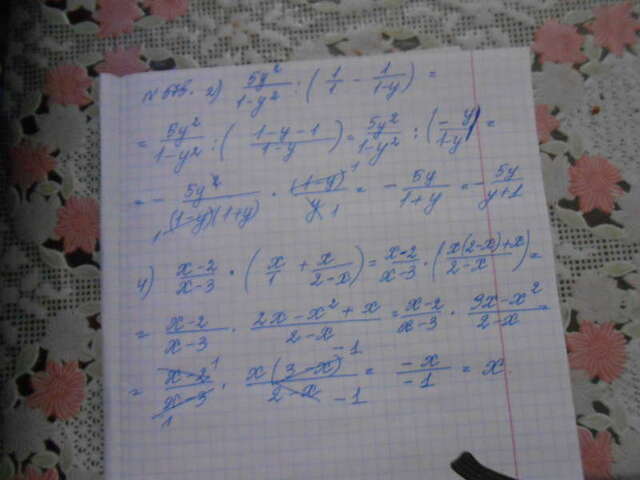 № 575. 2) 5y²/(1-y²) : (1/1 - 1/(1-y)) =
= 5y²/(1-y²) : ((1-y-1)/(1-y)) = 5y²/(1-y²) : (-y/(1-y)) =
= - 5y²/((1-y)(1+y)) · (1-y)/y = - 5y/(1+y) = - 5y/(y+1)
4) (x-2)/(x-3) · (x/1 + x/(2-x)) = (x-2)/(x-3) · ((x(2-x)+x)/(2-x)) =
= (x-2)/(x-3) · (2x-x²+x)/(2-x) = (x-2)/(x-3) · (3x-x²)/(2-x) =
= (x-2)/(x-3) · x(3-x)/(2-x) = -x/-1 = x